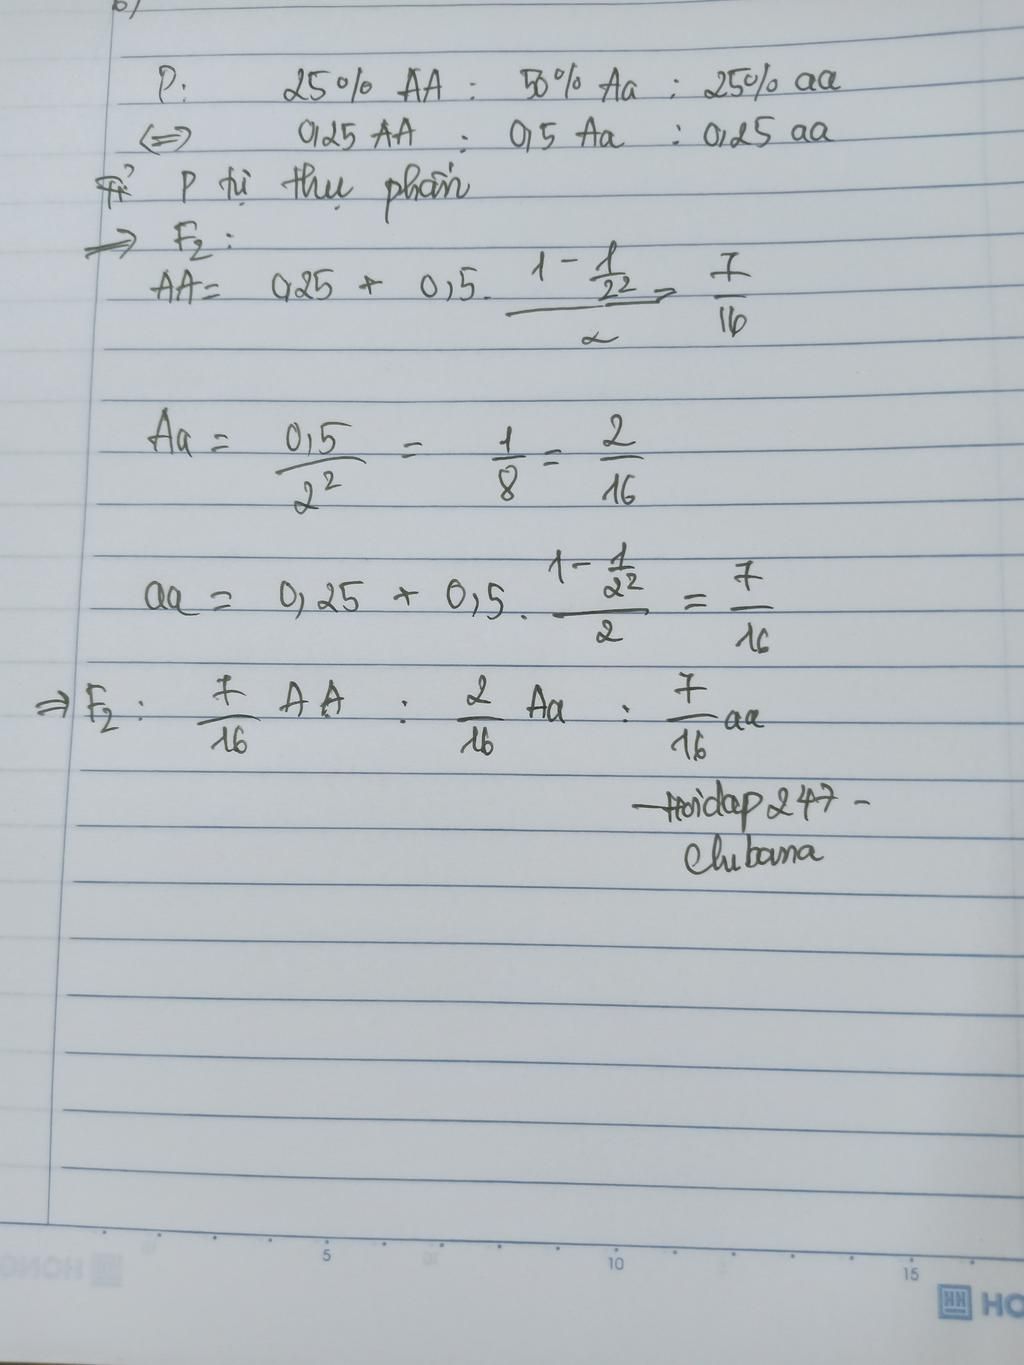 b)
P: 25% AA : 50% Aa : 25% aa
<=> 0,25 AA : 0,5 Aa : 0,25 aa
P tự thụ phấn
=> F₂ :
AA = 0,25 + 0,5 . (1 - 1/2²)/2 = 7/16
Aa = 0,5/2² = 1/8 = 2/16
aa = 0,25 + 0,5 . (1 - 1/2²)/2 = 7/16
=> F₂ : 7/16 AA : 2/16 Aa : 7/16 aa
- Hoidap247 -
Chubana
5 10 15
HO